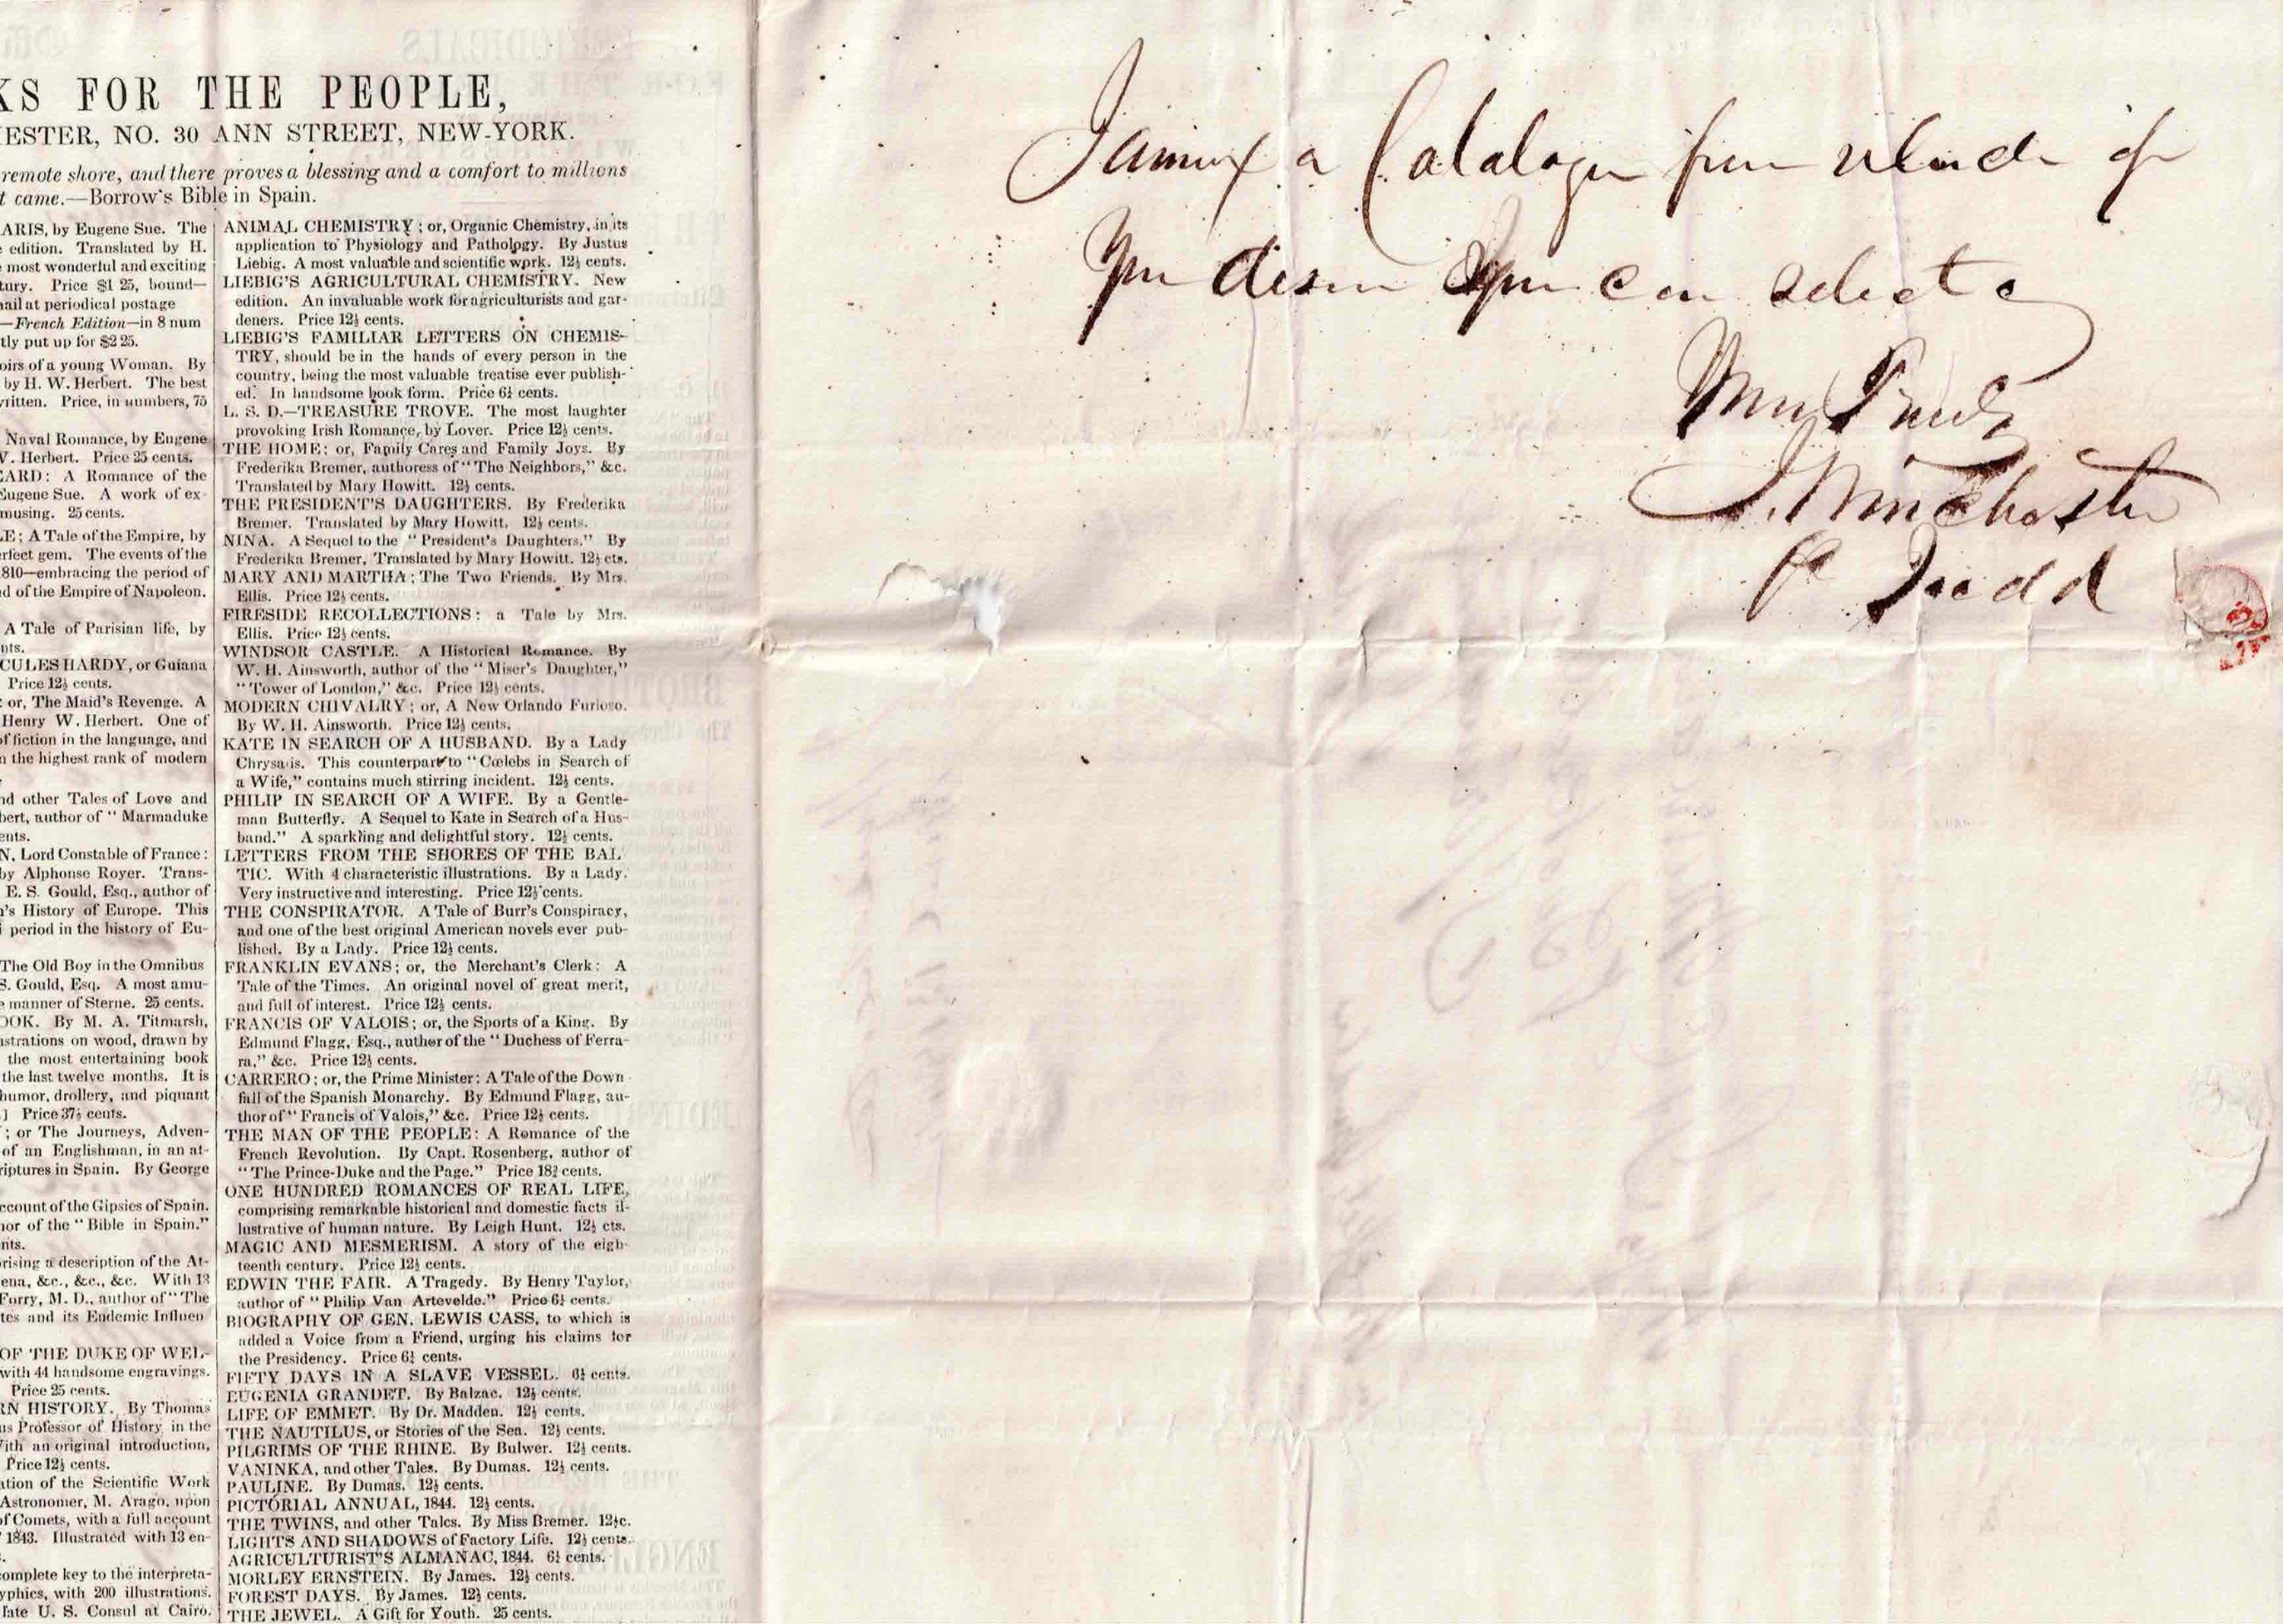 KS FOR THE PEOPLE,
ESTER, NO. 30 ANN STREET, NEW-YORK.
remote shore, and there proves a blessing and a comfort to millions
t came.—Borrow's Bible in Spain.
ARIS, by Eugene Sue. The
edition. Translated by H.
most wonderful and exciting
tury. Price $1 25, bound—
mail at periodical postage
—French Edition—in 8 num
tly put up for $2 25.
oirs of a young Woman. By
by H. W. Herbert. The best
written. Price, in numbers, 75
Naval Romance, by Eugene
V. Herbert. Price 25 cents.
EARD: A Romance of the
Eugene Sue. A work of ex
musing. 25 cents.
LE; A Tale of the Empire, by
erfect gem. The events of the
810—embracing the period of
d of the Empire of Napoleon.
A Tale of Parisian life, by
nts.
CULES HARDY, or Guiana
Price 12½ cents.
: or, The Maid's Revenge. A
Henry W. Herbert. One of
of fiction in the language, and
n the highest rank of modern
nd other Tales of Love and
bert, author of "Marmaduke
ents.
N, Lord Constable of France:
by Alphonse Royer. Trans-
E. S. Gould, Esq., author of
n's History of Europe. This
period in the history of Eu-
The Old Boy in the Omnibus
S. Gould, Esq. A most amu-
manner of Sterne. 25 cents.
OOK. By M. A. Titmarsh,
ustrations on wood, drawn by
the most entertaining book
the last twelve months. It is
humor, drollery, and piquant
] Price 37½ cents.
; or The Journeys, Adven-
of an Englishman, in an at-
riptures in Spain. By George
ccount of the Gipsies of Spain.
or of the "Bible in Spain."
nts.
rising a description of the At-
ena, &c., &c., &c. With 13
Forry, M. D., author of "The
tes and its Endemic Influen
OF THE DUKE OF WEL-
with 44 handsome engravings.
Price 25 cents.
RN HISTORY. By Thomas
us Professor of History in the
With an original introduction,
Price 12½ cents.
ation of the Scientific Work
Astronomer, M. Arago, upon
of Comets, with a full account
1843. Illustrated with 13 en-
complete key to the interpreta-
yphics, with 200 illustrations.
late U. S. Consul at Cairo.
ANIMAL CHEMISTRY; or, Organic Chemistry, in its
application to Physiology and Pathology. By Justus
Liebig. A most valuable and scientific work. 12½ cents.
LIEBIG'S AGRICULTURAL CHEMISTRY. New
edition. An invaluable work for agriculturists and gar-
deners. Price 12½ cents.
LIEBIG'S FAMILIAR LETTERS ON CHEMIS-
TRY, should be in the hands of every person in the
country, being the most valuable treatise ever publish-
ed. In handsome book form. Price 6¼ cents.
L. S. D.—TREASURE TROVE. The most laughter
provoking Irish Romance, by Lover. Price 12½ cents.
THE HOME; or, Family Cares and Family Joys. By
Frederika Bremer, authoress of "The Neighbors," &c.
Translated by Mary Howitt. 12½ cents.
THE PRESIDENT'S DAUGHTERS. By Frederika
Bremer. Translated by Mary Howitt. 12½ cents.
NINA. A Sequel to the "President's Daughters." By
Frederika Bremer. Translated by Mary Howitt. 12½ cts.
MARY AND MARTHA; The Two Friends. By Mrs.
Ellis. Price 12½ cents.
FIRESIDE RECOLLECTIONS: a Tale by Mrs.
Ellis. Price 12½ cents.
WINDSOR CASTLE. A Historical Romance. By
W. H. Ainsworth, author of the "Miser's Daughter,"
"Tower of London," &c. Price 12½ cents.
MODERN CHIVALRY; or, A New Orlando Furioso.
By W. H. Ainsworth. Price 12½ cents.
KATE IN SEARCH OF A HUSBAND. By a Lady
Chrysalis. This counterpart to "Cœlebs in Search of
a Wife," contains much stirring incident. 12½ cents.
PHILIP IN SEARCH OF A WIFE. By a Gentle-
man Butterfly. A Sequel to Kate in Search of a Hus-
band." A sparkling and delightful story. 12½ cents.
LETTERS FROM THE SHORES OF THE BAL
TIC. With 4 characteristic illustrations. By a Lady.
Very instructive and interesting. Price 12½ cents.
THE CONSPIRATOR. A Tale of Burr's Conspiracy,
and one of the best original American novels ever pub-
lished. By a Lady. Price 12½ cents.
FRANKLIN EVANS; or, the Merchant's Clerk: A
Tale of the Times. An original novel of great merit,
and full of interest. Price 12½ cents.
FRANCIS OF VALOIS; or, the Sports of a King. By
Edmund Flagg, Esq., author of the "Duchess of Ferra-
ra," &c. Price 12½ cents.
CARRERO; or, the Prime Minister: A Tale of the Down
fall of the Spanish Monarchy. By Edmund Flagg, au-
thor of "Francis of Valois," &c. Price 12½ cents.
THE MAN OF THE PEOPLE: A Romance of the
French Revolution. By Capt. Rosenberg, author of
"The Prince-Duke and the Page." Price 18¾ cents.
ONE HUNDRED ROMANCES OF REAL LIFE,
comprising remarkable historical and domestic facts il-
lustrative of human nature. By Leigh Hunt. 12½ cts.
MAGIC AND MESMERISM. A story of the eigh-
teenth century. Price 12½ cents.
EDWIN THE FAIR. A Tragedy. By Henry Taylor,
author of "Philip Van Artevelde." Price 6¼ cents.
BIOGRAPHY OF GEN. LEWIS CASS, to which is
added a Voice from a Friend, urging his claims for
the Presidency. Price 6¼ cents.
FIFTY DAYS IN A SLAVE VESSEL. 6¼ cents.
EUGENIA GRANDET. By Balzac. 12½ cents.
LIFE OF EMMET. By Dr. Madden. 12½ cents.
THE NAUTILUS, or Stories of the Sea. 12½ cents.
PILGRIMS OF THE RHINE. By Bulwer. 12½ cents.
VANINKA, and other Tales. By Dumas. 12½ cents.
PAULINE. By Dumas. 12½ cents.
PICTORIAL ANNUAL, 1844. 12½ cents.
THE TWINS, and other Tales. By Miss Bremer. 12½c.
LIGHTS AND SHADOWS of Factory Life. 12½ cents.
AGRICULTURIST'S ALMANAC, 1844. 6¼ cents.
MORLEY ERNSTEIN. By James. 12½ cents.
FOREST DAYS. By James. 12½ cents.
THE JEWEL. A Gift for Youth. 25 cents.
I annex a Catalogue from which if
you desire you can select
Yours Truly
J. Winchester
Judd